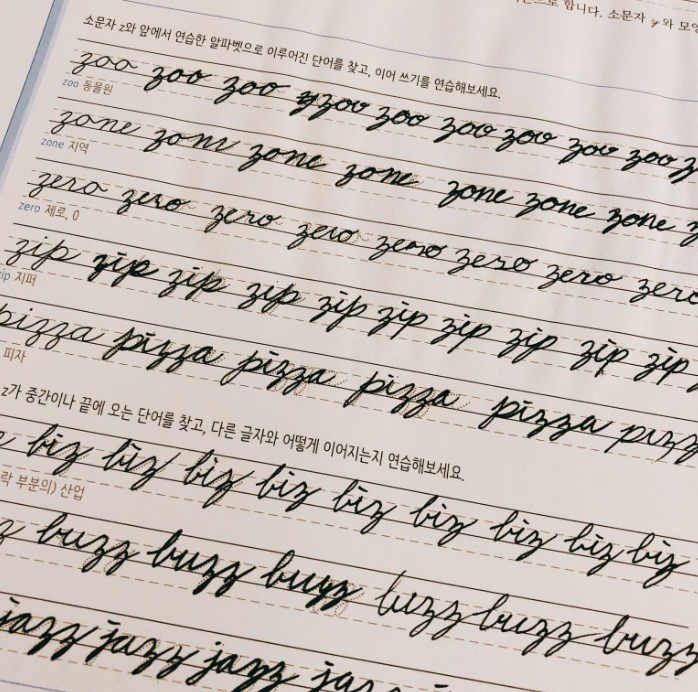 으로 합니다. 소문자 y와 모양
소문자 z와 앞에서 연습한 알파벳으로 이루어진 단어를 찾고, 이어 쓰기를 연습해보세요.
zoo zoo zoo zoo zoo zoo zoo zoo zoo
zoo 동물원
zone zone zone zone zone zone zone
zone 지역
zero zero zero zero zero zero zero zero
zero 제로, 0
zip zip zip zip zip zip zip zip zip zip
zip 지퍼
pizza pizza pizza pizza pizza pizz
피자
z가 중간이나 끝에 오는 단어를 찾고, 다른 글자와 어떻게 이어지는지 연습해보세요.
biz biz biz biz biz biz biz biz biz
락 부분의) 산업
z buzz buzz buzz buzz buzz buzz
jazz jazz jazz jaz